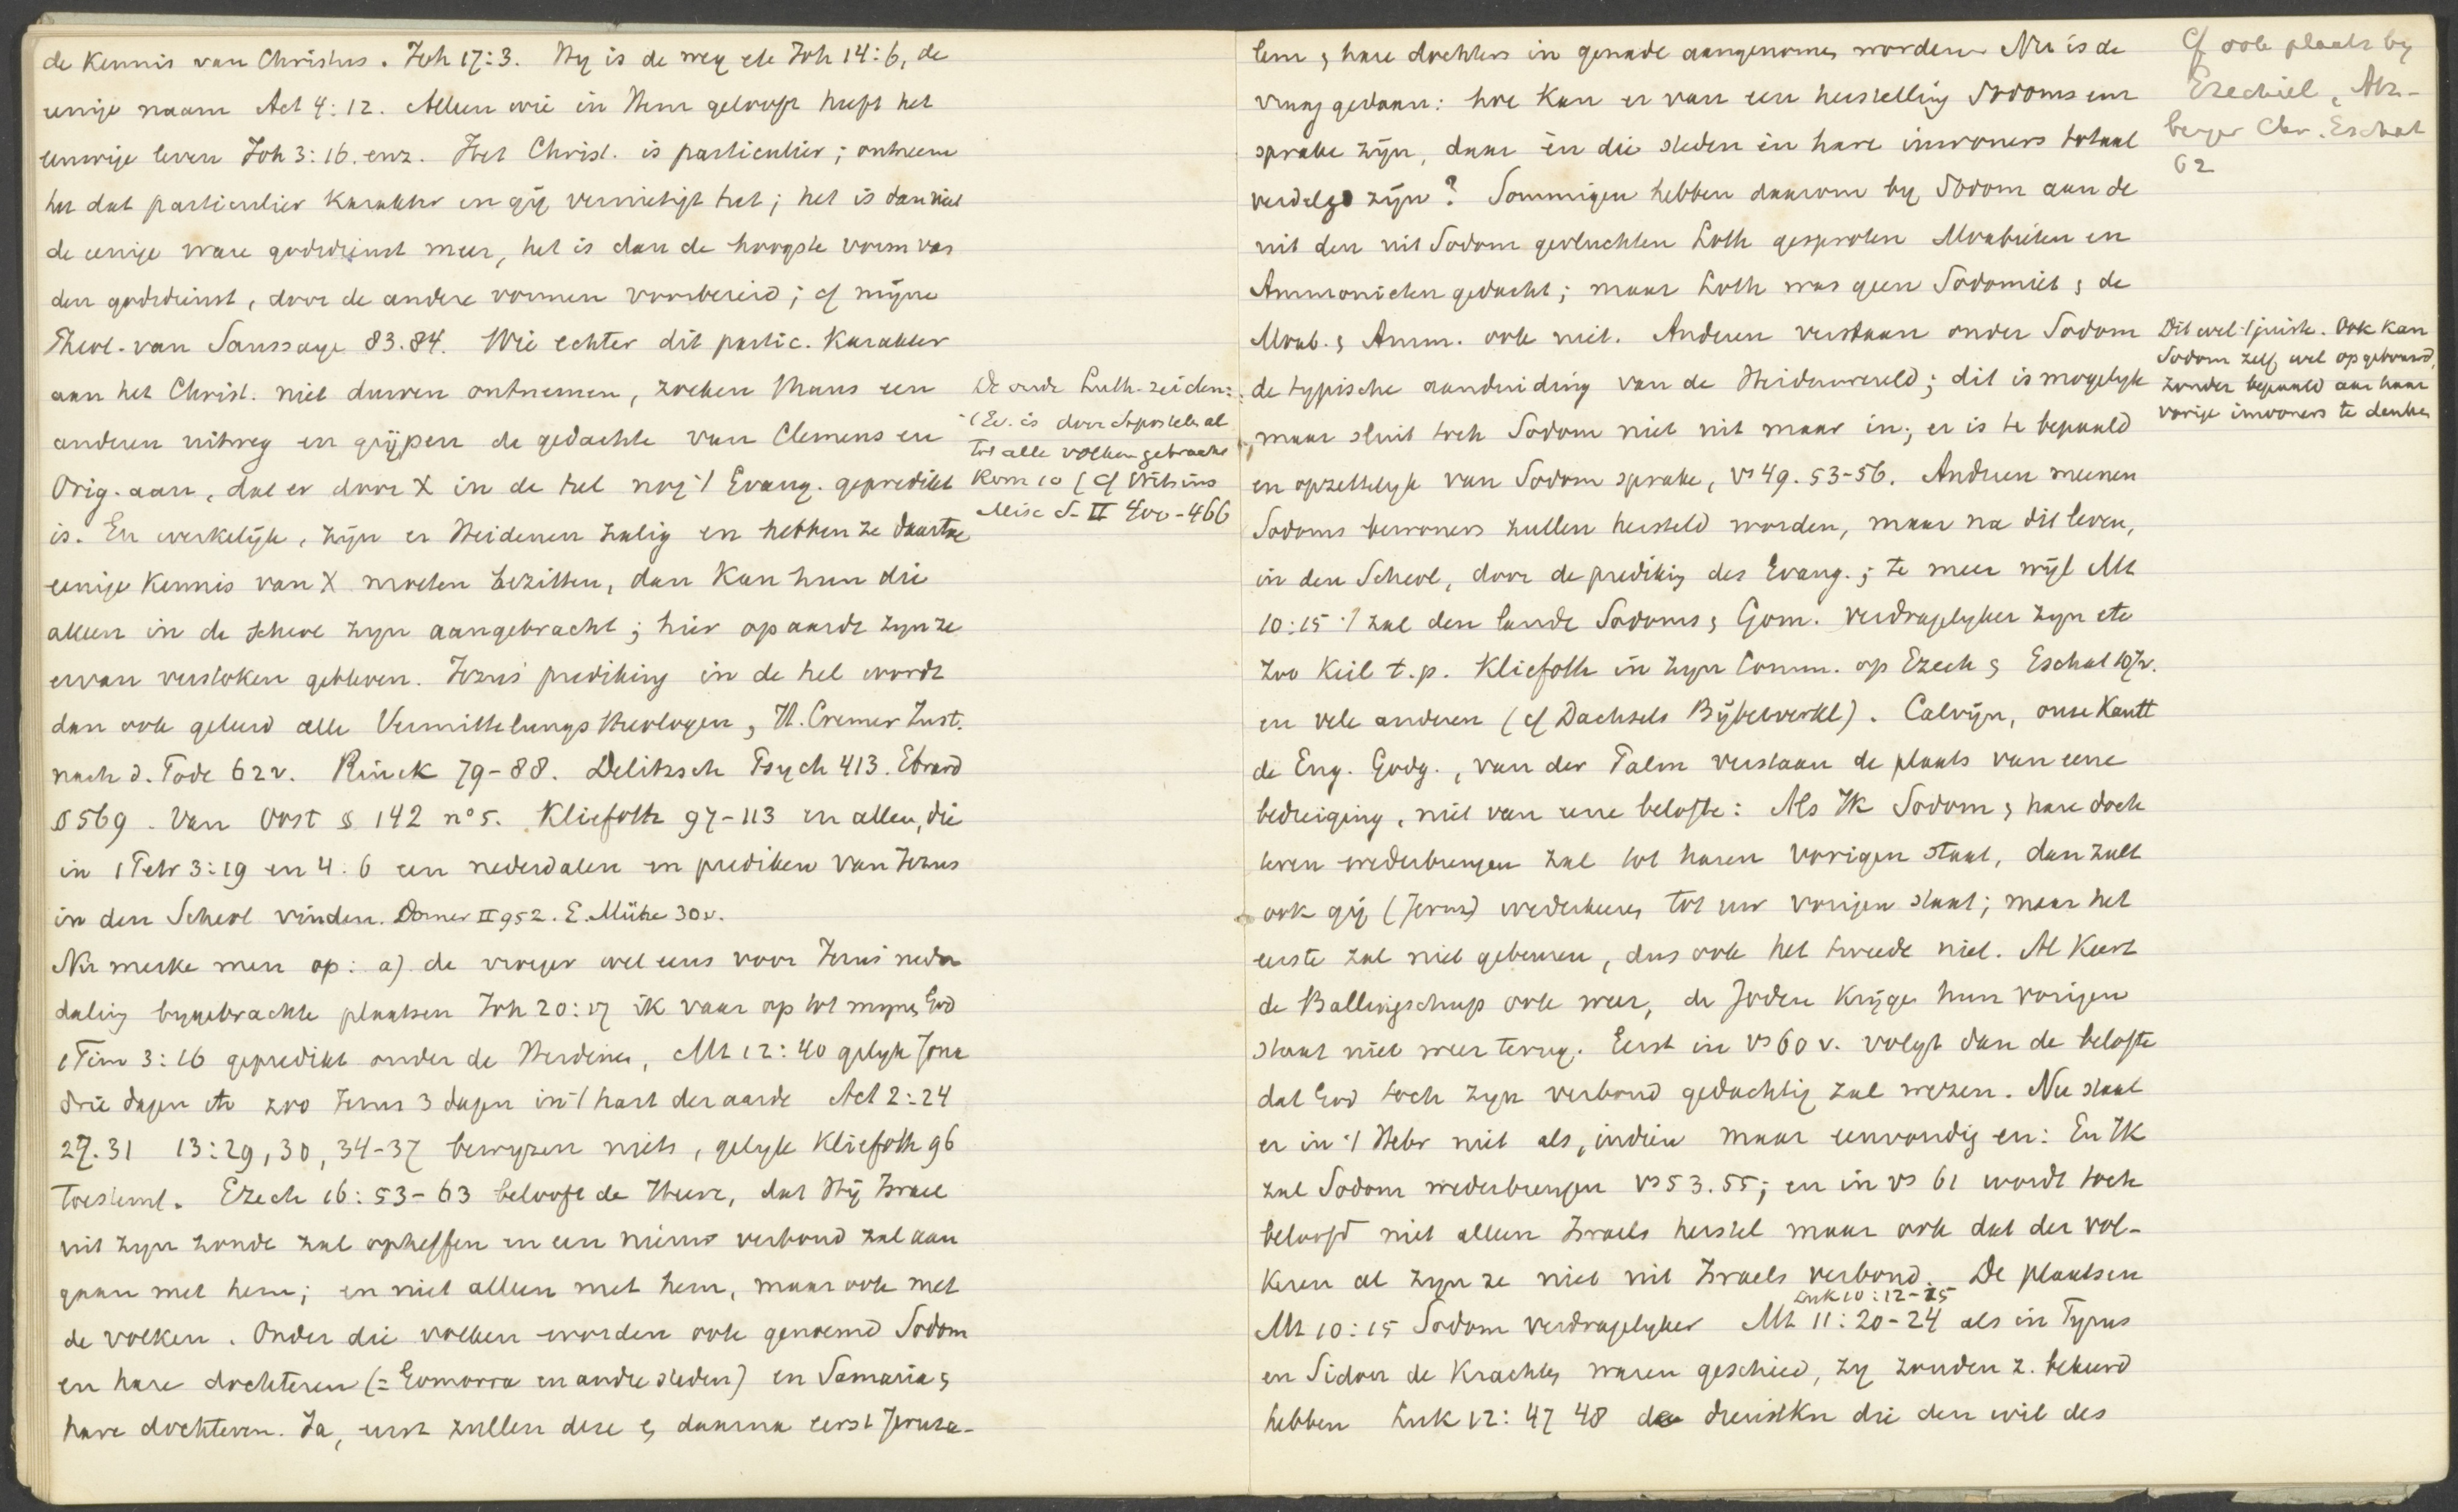 de Kennis van Christus. Joh 17:3. Hy is de weg etc Joh 14:6, de
eenige naam Act 4:12. Alleen wie in Hem gelooft heeft het
eeuwige leven Joh 3:16. enz. Het Christ. is particulier; ontneem
het dat particulier karakter en gij vernietigt het; het is dan niet
de eenige ware godsdienst meer, het is dan de hoogste vorm van
den godsdienst, door de andere vormen voorbereid; cf mijne
Theol. van Saussaye 83.84. Wie echter dit partic. karakter
aan het Christ. niet durven ontnemen, zoeken thans een
anderen uitweg en grijpen de gedachte van Clemens en
Orig. aan, dat er door X in de hel nog 't Evang. gepredikt
is. En werkelijk, zijn er Heidenen zalig en hebben ze daartoe
eenige Kennis van X moeten bezitten, dan kan hun die
alleen in de scheol zyn aangebracht; hier op aarde zyn ze
ervan verstoken gebleven. Jezus' prediking in de hel wordt
dan ook geleerd alle Vermittelungstheologen, H. Cremer Zust.
nach d. Tode 62v. Rinck 79-88. Delitzsch Psych 413. Ebrard
§ 569. Van Oost § 142 n° 5. Kliefoth 97-113 en allen, die
in 1 Petr 3:19 en 4:6 een nederdalen en prediken van Jezus
in den Scheol vinden. Dorner II 952. E. Mühe 30v.
Nu merke men op: a) de vroeger wel eens voor Jezus' neder
daling bygebrachte plaatsen Joh 20:17 ik vaar op tot mynen God
1 Tim 3:16 gepredikt onder de Heidenen, Mt 12:40 gelyk Jona
drie dagen etc zoo Jezus 3 dagen in 't hart der aarde Act 2:24
27.31 13:29, 30, 34-37 bewyzen niets, gelyk Kliefoth 96
toestemt. Ezech 16:53-63 belooft de Heere, dat Hij Israel
uit zyn zonde zal opheffen en een nieuw verbond zal aan
gaan met hem; en niet alleen met hem, maar ook met
de volken. Onder die volken worden ook genoemd Sodom
en hare dochteren (= Gomorra en andre steden) en Samaria &
hare dochteren. Ja, eerst zullen deze & daarna eerst Jeruza-
De oude Luth. zeiden:
't Ev. is door Apostelen al
tot alle volken gebracht
Rom 10 (cf Witsius
Misc S. II 400-466
lem & hare dochters in genade aangenomen worden. Nu is de
vraag gedaan: hoe kan er van een herstelling Sodoms enz
sprake zijn, daar én die steden én hare inwoners totaal
verdelgd zijn? Sommigen hebben daarom by Sodom aan de
uit den uit Sodom gevluchten Loth gesproten Moabieten en
Ammonieten gedacht; maar Loth was geen Sodomiet & de
Moab. & Amm. ook niet. Anderen verstaan onder Sodom
de typische aanduiding van de Heidenwereld; dit is mogelyk
maar sluit toch Sodom niet uit maar in; er is te bepaald
en opzettelyk van Sodom sprake, vs 49. 53-56. Anderen meenen
Sodoms bewoners zullen hersteld worden, maar na dit leven,
in den Scheol, door de prediking des Evang.; te meer wijl Mt
10:15 't zal den lande Sodoms & Gom. verdragelyker zyn etc
Zoo Keil t.p. Kliefoth in zyn Comm. op Ezech & Eschat 107v.
en vele anderen (cf Dachsels Bijbelwerk). Calvijn, onze Kantt
de Eng. Godg., van der Palm verstaan de plaats van eene
bedreiging, niet van eene belofte: Als Ik Sodom & hare doch
teren wederbrengen zal tot haren vorigen staat, dan zult
ook gij (Jeruz) wederkeeren tot uw vorigen staat; maar het
eerste zal niet gebeuren, dus ook het tweede niet. Al keert
de Ballingschap ook weer, de Joden krijgen hun vorigen
staat niet weer terug. Eerst in vs 60 v. volgt dan de belofte
dat God toch zyn verbond gedachtig zal wezen. Nu staat
er in 't Hebr niet als, indien maar eenvoudig en: En Ik
zal Sodom wederbrengen vs 53.55; en in vs 61 wordt toch
beloofd niet alleen Israels herstel maar ook dat der vol-
keren al zyn ze niet uit Israels verbond. De plaatsen
Luk 10:12-15
Mt 10:15 Sodom verdragelyker Mt 11:20-24 als in Tyrus
en Sidon de Krachten waren geschied, zy zouden z. bekeerd
hebben Luk 12:47 48 de dienstkn die den wil des
Cf ook plaats by
Ezechiel, Atz-
berger Chr. Eschat
62
Dit wel 't juiste. Ook kan
Sodom zelf wel opgebouwd,
zonder bepaald aan haar
vorige inwoners te denken